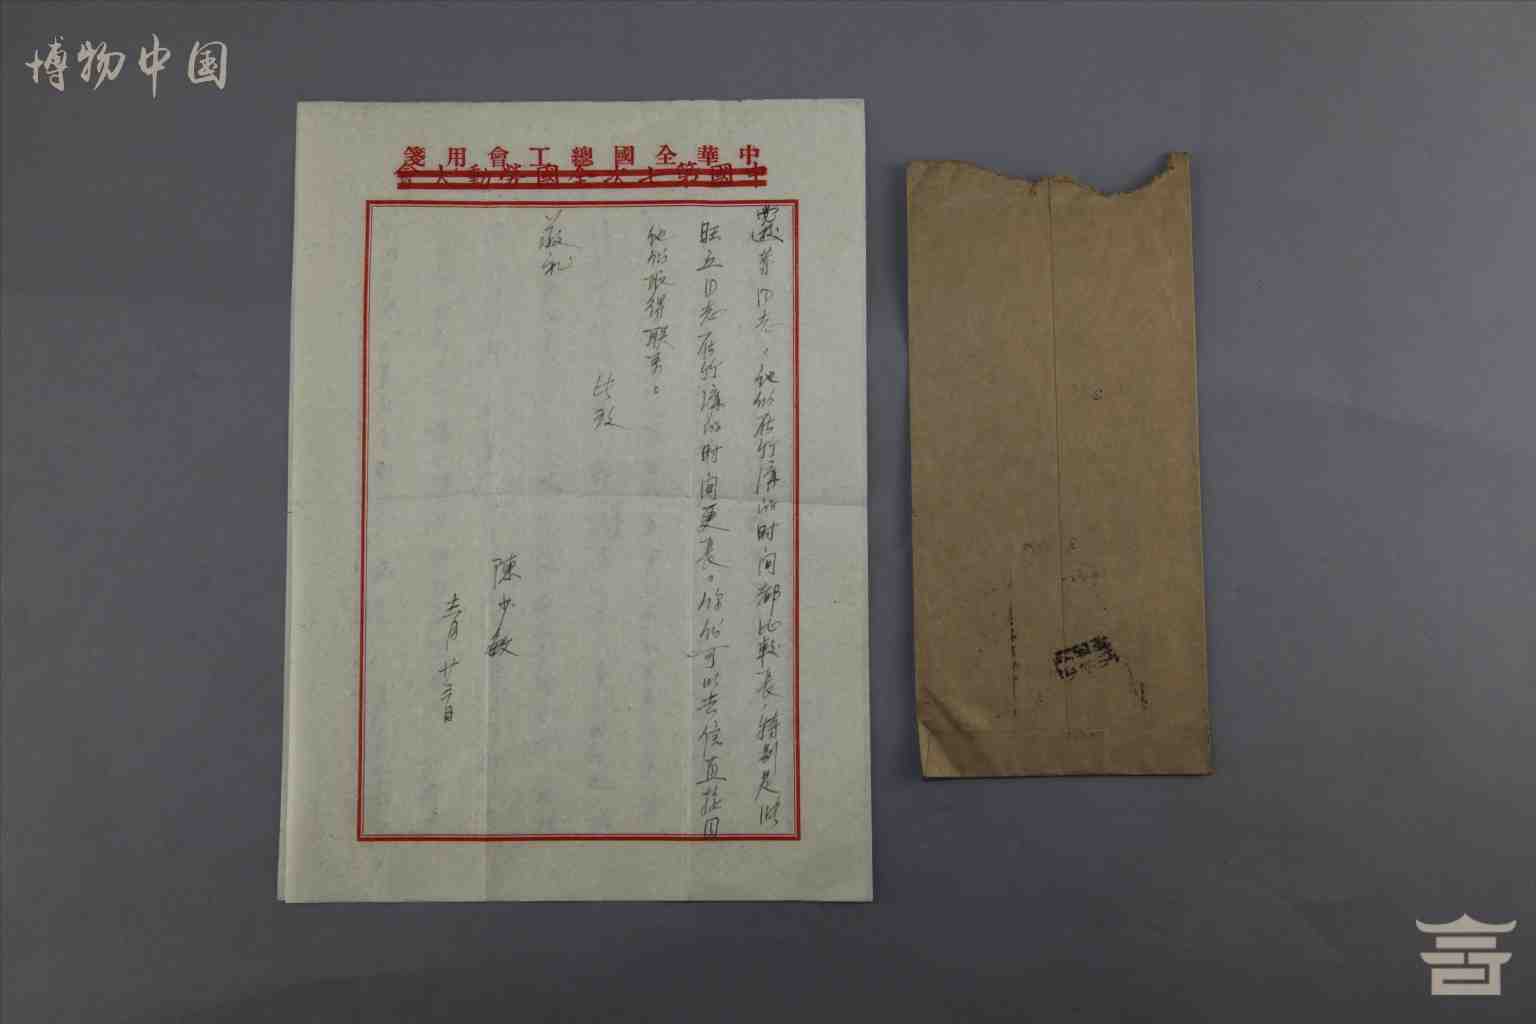 博物中国
中華全國總工會用箋
中國第七次全國勞動大會
芳同志，他们在竹溝的时间都比較长，特别是
旺五同志在竹溝的时间更长。你们可以去信直接同
他们取得联系。
此致
敬礼
陳少敏